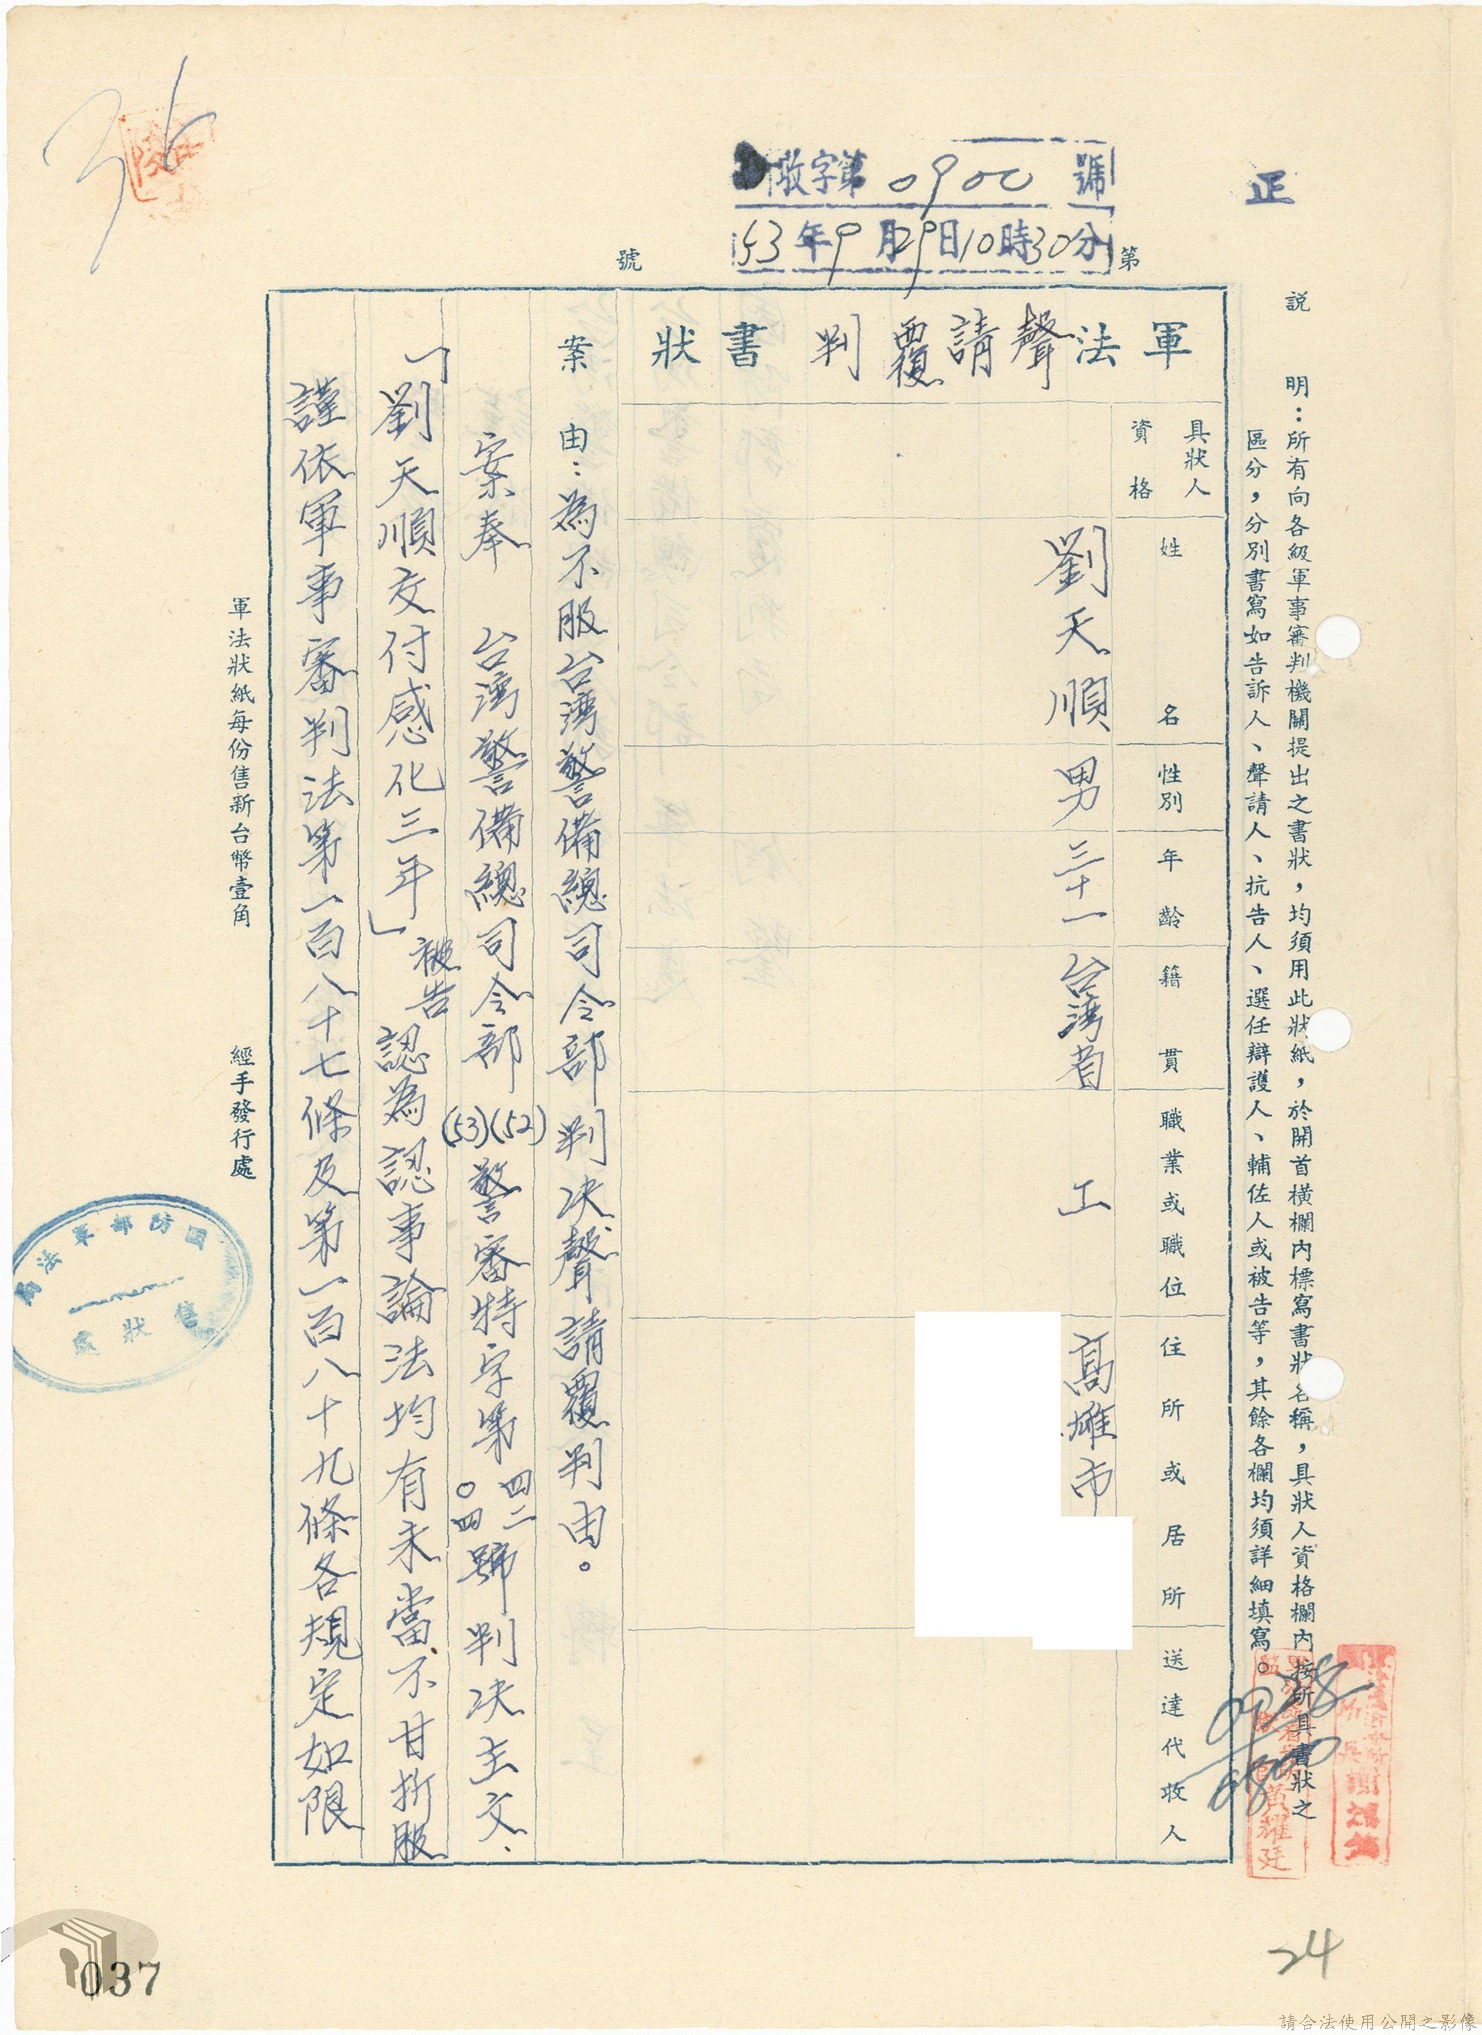 正
收字第0900號
53年9月29日10時30分
第 號
36
說 明：所有向各級軍事審判機關提出之書狀，均須用此狀紙，於開首橫欄內標寫書狀名稱，具狀人資格欄內按所具書狀之
區分，分別書寫如告訴人、聲請人、抗告人、選任辯護人、輔佐人或被告等，其餘各欄均須詳細填寫。
軍法聲請覆判書狀
具狀人資格
姓名
性別
年齡
籍貫
職業或職位
住所或居所
送達代收人
劉天順
男
三十一
台湾省
工
高雄市
案由：為不服台湾警備總司令部判决聲請覆判由。
案奉 台湾警備總司令部(53)(52)警審特字第四二〇四號判决主文、
「劉天順交付感化三年」被告認為認事論法均有未當、不甘折服
謹依軍事審判法第一百八十七條及第一百八十九條各規定如限
軍法狀紙每份售新台幣壹角 經手發行處
國防部軍法局
售狀處
黃耀廷
0928
0800
24
037
請合法使用公開之影像